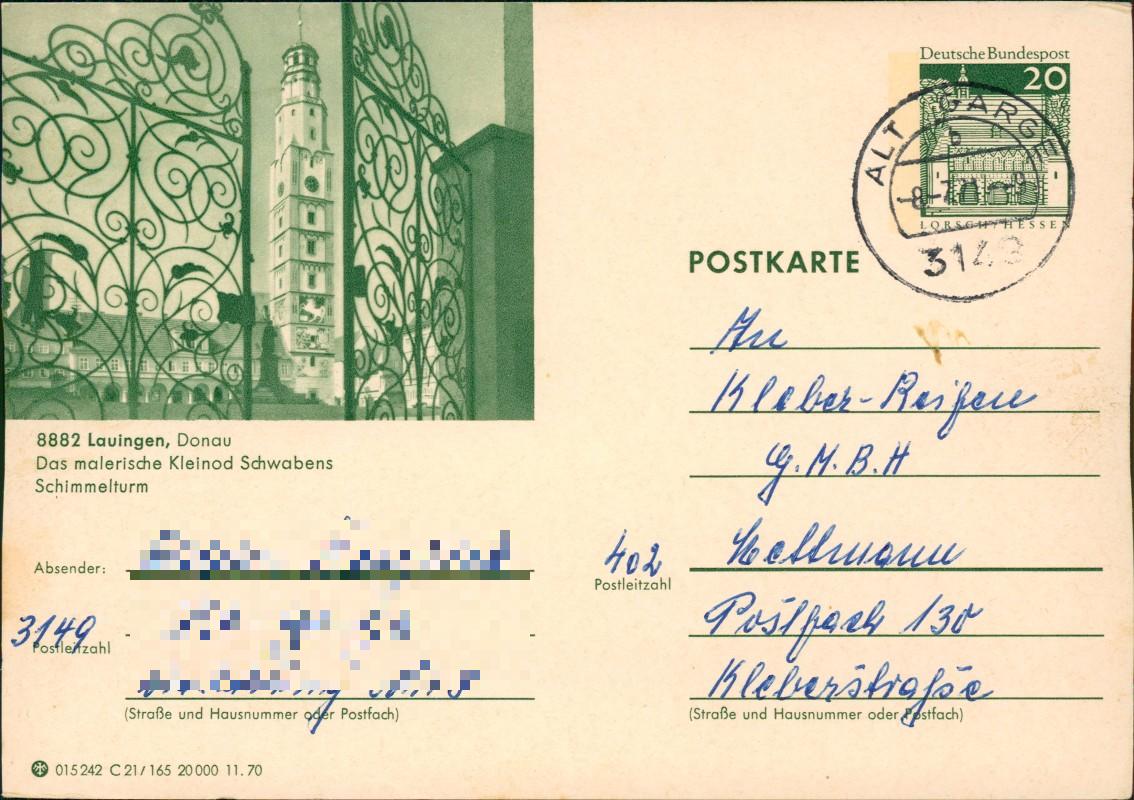 Deutsche Bundespost
20
LORSCH / HESSEN
ALT GARGE
b
-8.-7.71--9
3143
POSTKARTE
8882 Lauingen, Donau
Das malerische Kleinod Schwabens
Schimmelturm
An
Kleber-Reifen
G.M.B.H
402 Mettmann
Postleitzahl
Postfach 130
Kleberstraße
(Straße und Hausnummer oder Postfach)
Absender:
3149
Postleitzahl
(Straße und Hausnummer oder Postfach)
015242 C 21/165 20 000 11.70